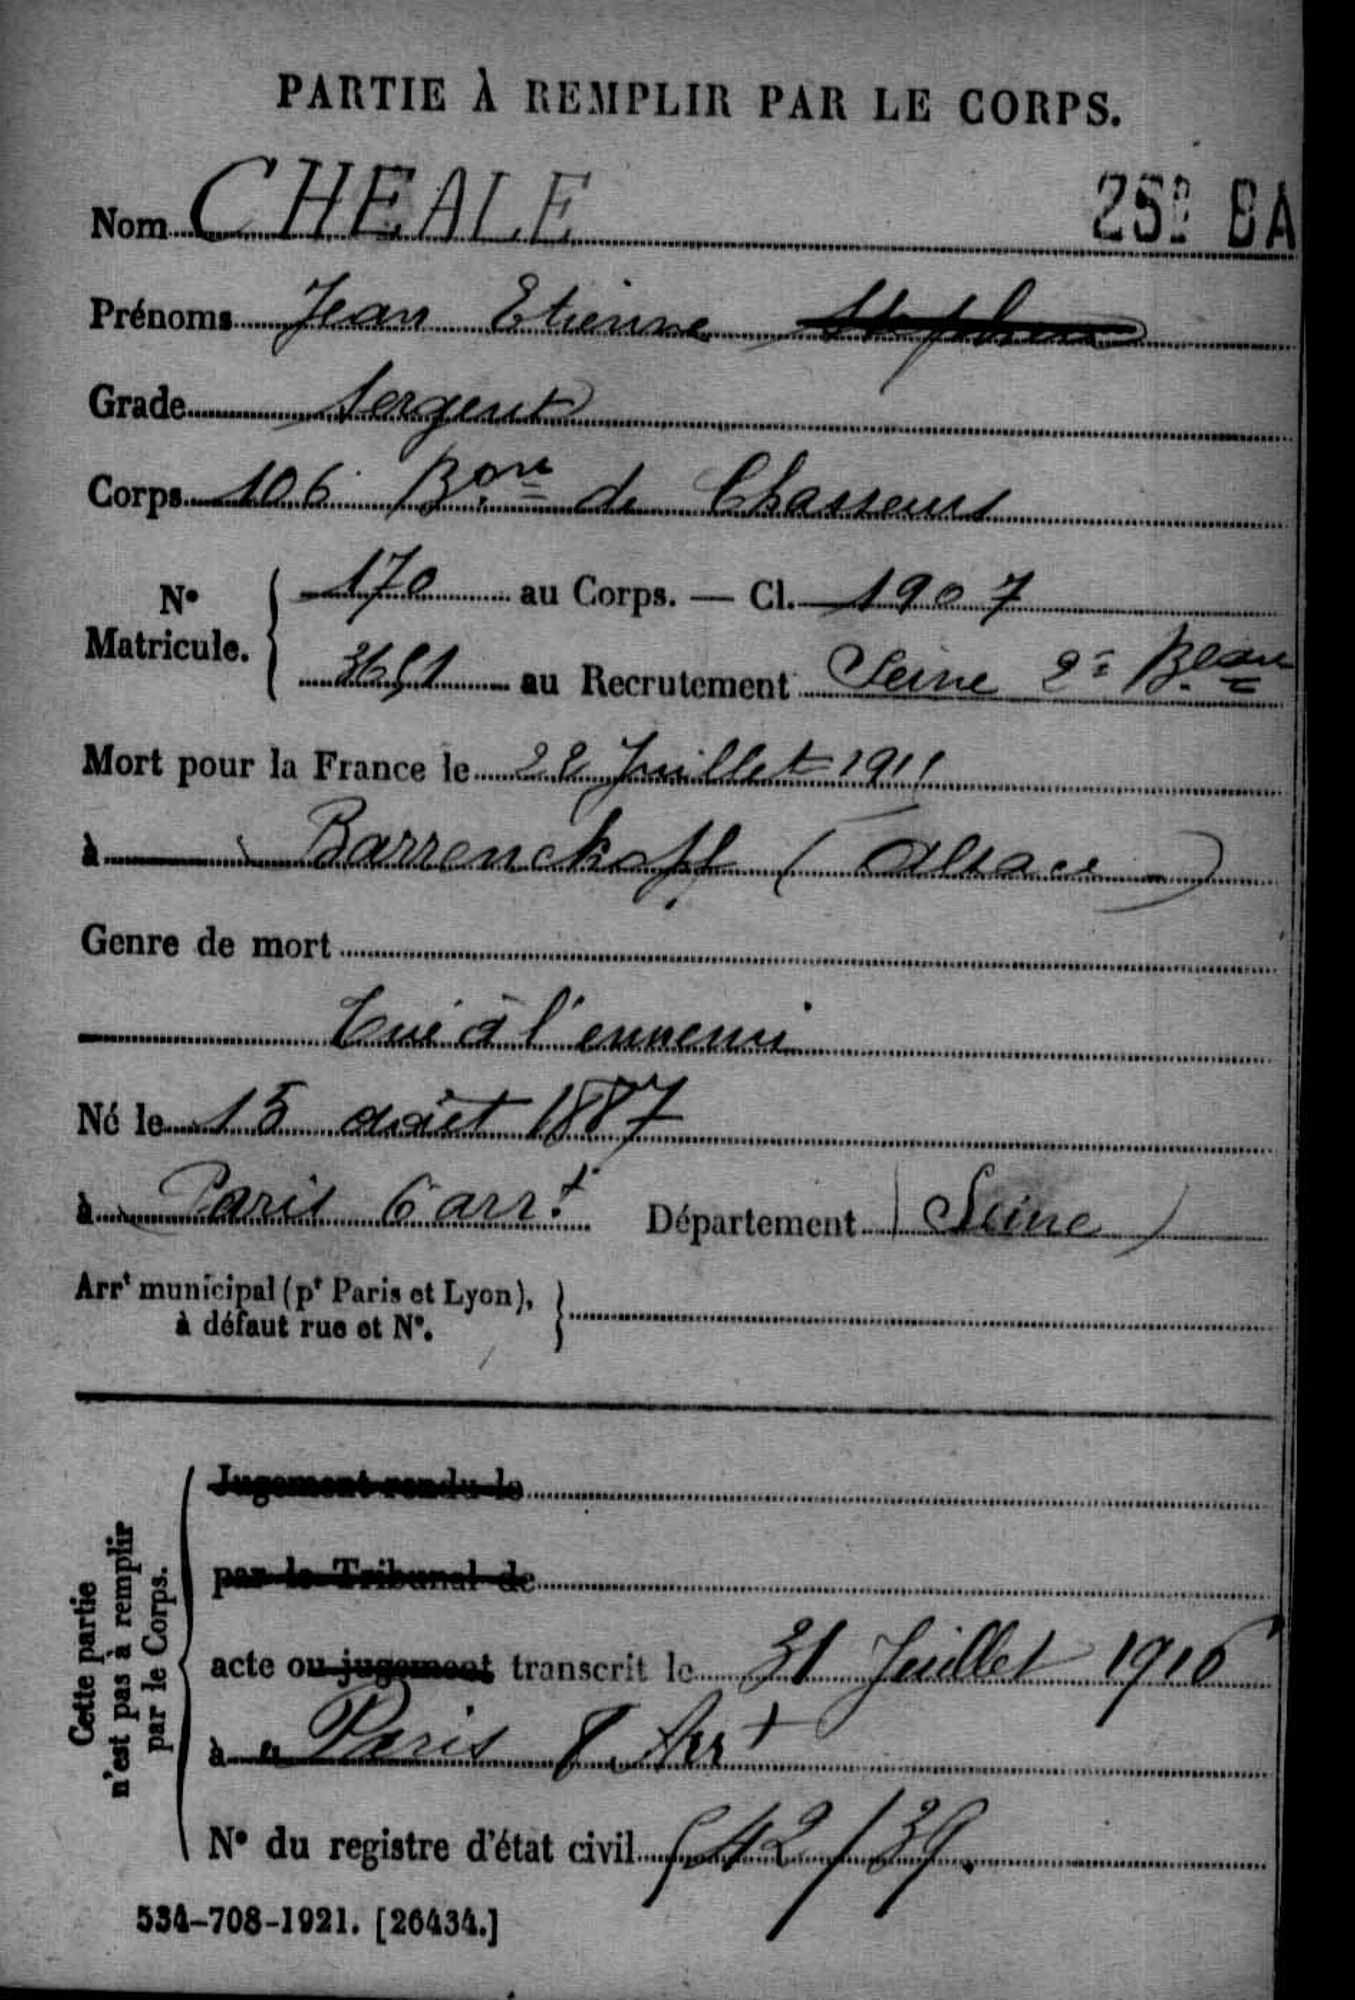 PARTIE À REMPLIR PAR LE CORPS.
Nom CHEALE
25 BA
Prénoms Jean Etienne Stephen
Grade Sergent
Corps 106 Bon de Chasseurs
N° Matricule. 170 au Corps. — Cl. 1907
3651 au Recrutement Seine 2e Beau
Mort pour la France le 22 Juillet 1915
à Barrenckopf (Alsace)
Genre de mort
Tué à l'ennemi
Né le 15 août 1887
à Paris 6 arrt Département (Seine)
Arrt municipal (pr Paris et Lyon),
à défaut rue et N°.
Cette partie
n'est pas à remplir
par le Corps.
Jugement rendu le
par le Tribunal de
acte ou jugement transcrit le 31 Juillet 1916
à Paris 8 Arrt
N° du registre d'état civil 542/39.
534-708-1921. [26434.]